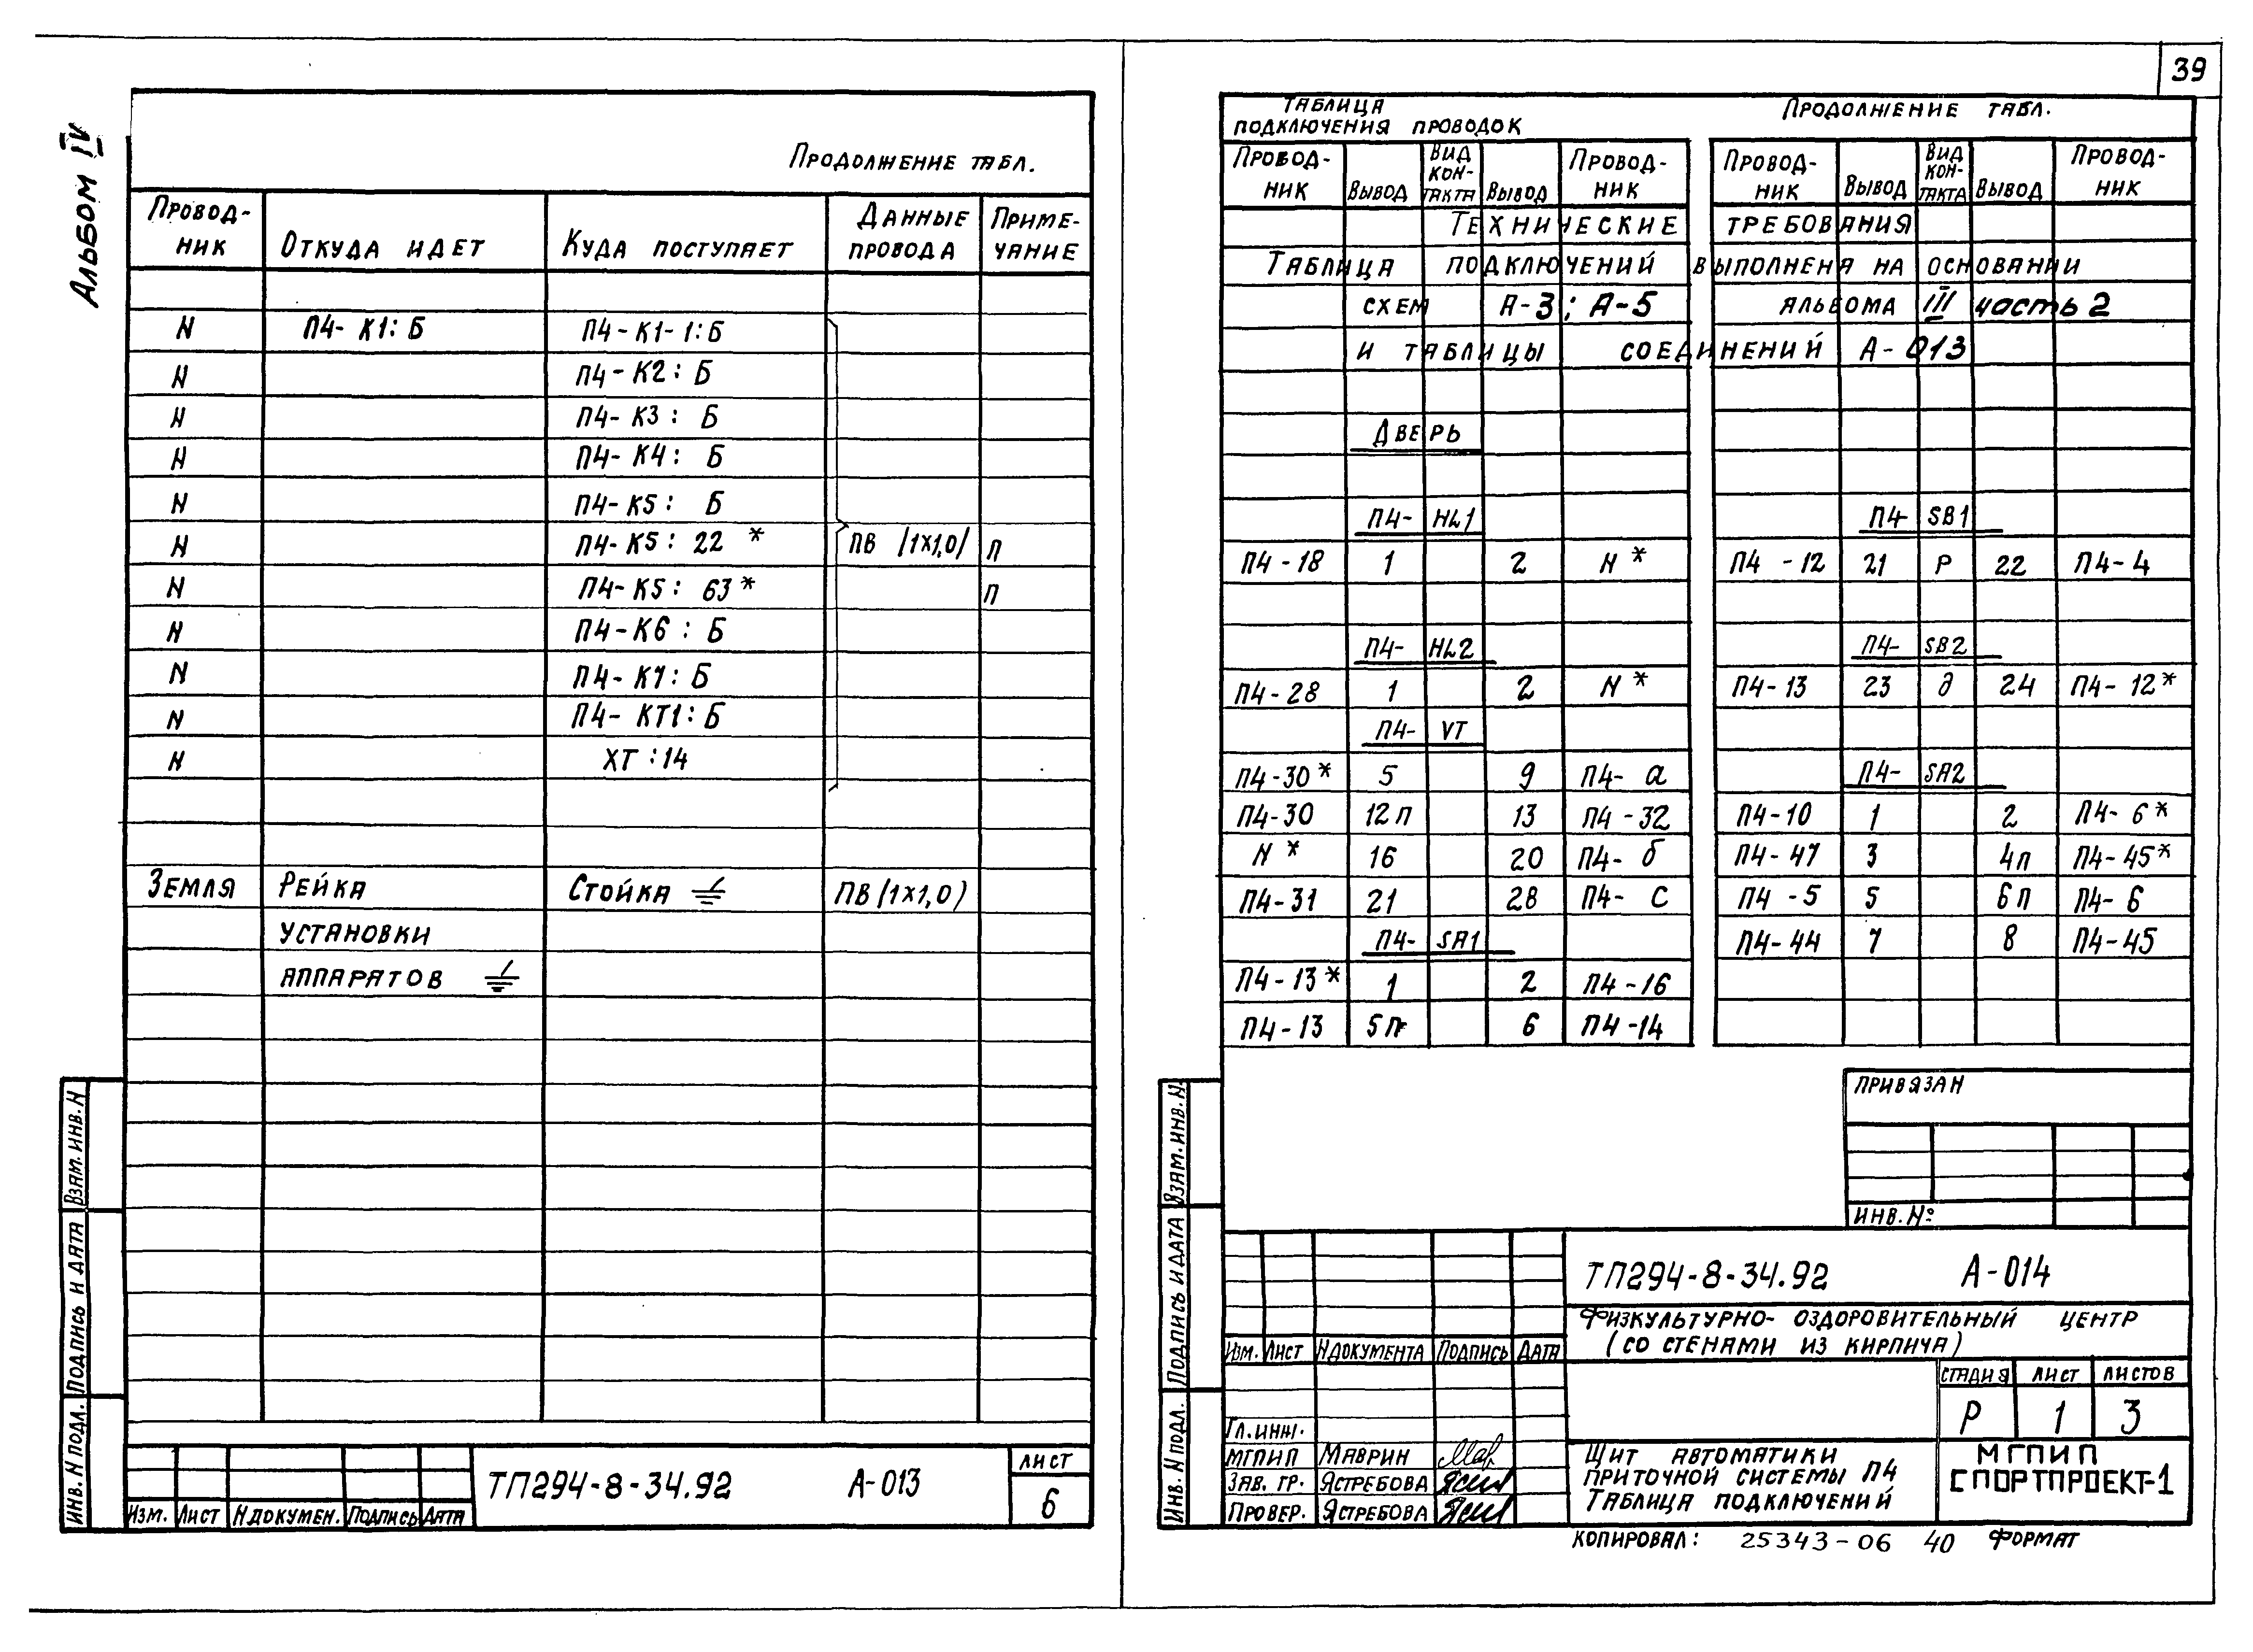 39
Альбом IV
Продолжение табл.
Провод-ник Откуда идет Куда поступает Данные провода Приме-чание
N П4-К1:Б П4-К1-1:Б
N П4-К2:Б
N П4-К3:Б
N П4-К4:Б
N П4-К5:Б
N П4-К5:22 * ПВ (1х1,0) п
N П4-К5:63 * п
N П4-К6:Б
N П4-К7:Б
N П4-КТ1:Б
N ХТ:14
Земля Рейка Стойка ПВ(1х1,0)
установки
аппаратов
Взам.инв.N
Подпись и дата
Инв.N подл.
Изм. Лист Nдокумен. Подпись Дата
ТП294-8-34.92 А-013
лист
6
Таблица
подключения проводок
Продолжение табл.
Провод-ник Вывод Вид кон-такта Вывод Провод-ник Провод-ник Вывод Вид кон-такта Вывод Провод-ник
Технические требования
Таблица подключений выполнена на основании
схем А-3; А-5 альбома III часть 2
и таблицы соединений А-013
Дверь
П4-HL1 П4-SB1
П4-18 1 2 N * П4-12 21 Р 22 П4-4
П4-HL2 П4-SB2
П4-28 1 2 N * П4-13 23 д 24 П4-12*
П4-VT
П4-30* 5 9 П4-а П4-SA2
П4-30 12п 13 П4-32 П4-10 1 2 П4-6*
N * 16 20 П4-б П4-47 3 4п П4-45*
П4-31 21 28 П4-с П4-5 5 6п П4-6
П4-SA1 П4-44 7 8 П4-45
П4-13* 1 2 П4-16
П4-13 5п 6 П4-14
Привязан
Инв.№
Взам.инв.N
Подпись и дата
Инв.N подл.
ТП294-8-34.92 А-014
Физкультурно-оздоровительный центр
(со стенами из кирпича)
Изм. Лист Nдокумента Подпись Дата
стадия лист листов
Р 1 3
Гл.инж.
МГПИП Маврин
Зав. гр. Ястребова
Провер. Ястребова
Щит автоматики
приточной системы П4
Таблица подключений
МГПИП
СПОРТПРОЕКТ-1
Копировал: 25343-06 40 Формат